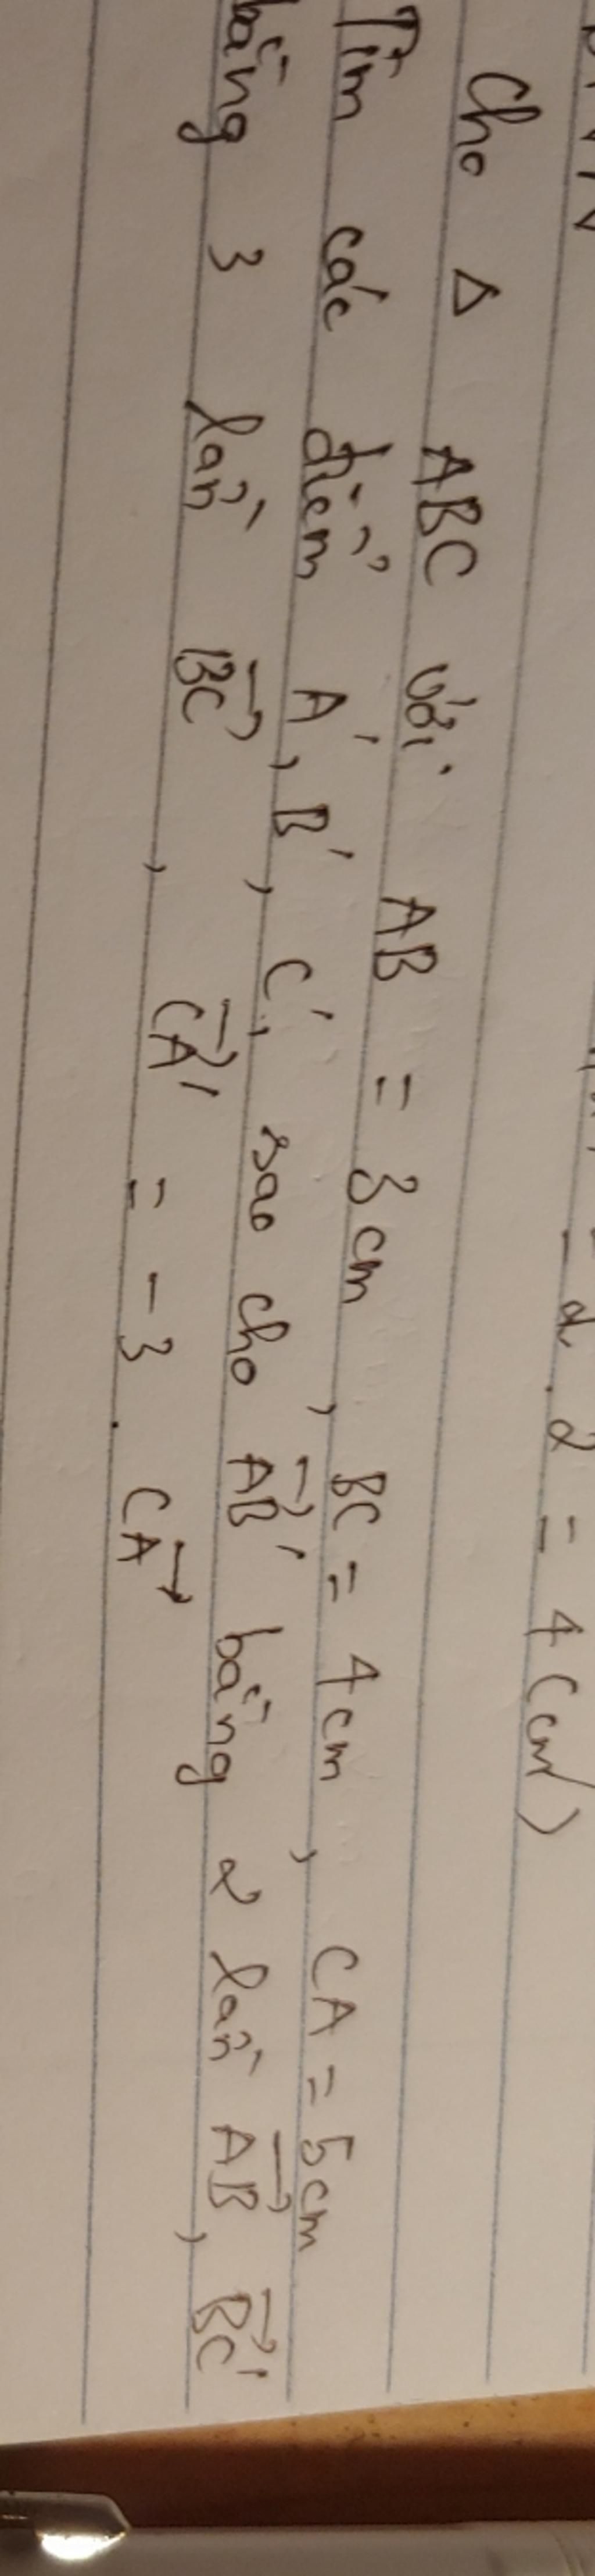 - 2 . 2 = 4 (cm)
Cho Δ ABC với AB = 3cm , BC = 4cm , CA = 5cm
Tìm các điểm A', B', C', sao cho AB'→ bằng 2 lần AB→, BC'→
bằng 3 lần BC→ , CA'→ = -3 . CA→